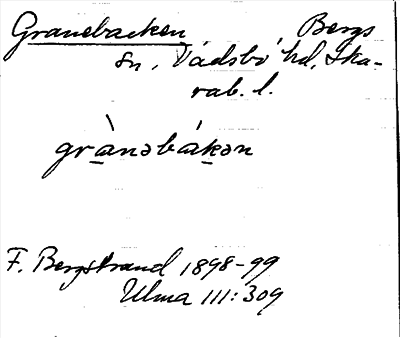 Granebacken Bergs
sn, Vadsbo hd, Ska-
rab. l.
grå̱̀nəbákən
F. Bergstrand 1898-99
Ulma 111:309